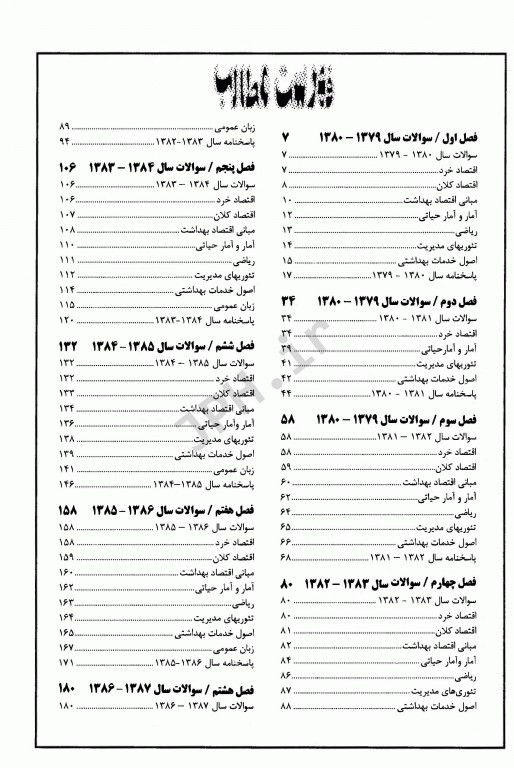 فهرست مطالب
فصل اول / سوالات سال ۱۳۷۹ – ۱۳۸۰ ۷
سوالات سال ۱۳۸۰ - ۱۳۷۹ ۷
اقتصاد خرد ۷
اقتصاد کلان ۸
مبانی اقتصاد بهداشت ۱۰
آمار و آمار حیاتی ۱۲
ریاضی ۱۳
تئوریهای مدیریت ۱۴
اصول خدمات بهداشتی ۱۵
پاسخنامه سال ۱۳۸۰ - ۱۳۷۹ ۱۷
فصل دوم / سوالات سال ۱۳۷۹ – ۱۳۸۰ ۳۴
سوالات سال ۱۳۸۱ - ۱۳۸۰ ۳۴
اقتصاد خرد ۳۴
آمار و آمارحیاتی ۳۹
تئوریهای مدیریت ۴۱
اصول خدمات بهداشتی ۴۲
پاسخنامه سال ۱۳۸۱ - ۱۳۸۰ ۴۴
فصل سوم / سوالات سال ۱۳۷۹ – ۱۳۸۰ ۵۸
سوالات سال ۱۳۸۲ – ۱۳۸۱ ۵۸
اقتصاد خرد ۵۸
اقتصاد کلان ۵۹
مبانی اقتصاد بهداشت ۶۰
آمار و آمار حیاتی ۶۲
ریاضی ۶۴
تئوریهای مدیریت ۶۵
اصول خدمات بهداشتی ۶۶
پاسخنامه سال ۱۳۸۲ – ۱۳۸۱ ۶۸
فصل چهارم / سوالات سال ۱۳۸۳ – ۱۳۸۲ ۸۰
سوالات سال ۱۳۸۳ - ۱۳۸۲ ۸۰
اقتصاد خرد ۸۰
اقتصاد کلان ۸۱
مبانی اقتصاد بهداشت ۸۲
آمار وآمار حیاتی ۸۴
ریاضی ۸۶
تئوری‌های مدیریت ۸۷
اصول خدمات بهداشتی ۸۸
زبان عمومی ۸۹
پاسخنامه سال ۱۳۸۳-۱۳۸۲ ۹۴
فصل پنجم / سوالات سال ۱۳۸۴ – ۱۳۸۳ ۱۰۶
سوالات سال ۱۳۸۴ – ۱۳۸۳ ۱۰۶
اقتصاد خرد ۱۰۶
اقتصاد کلان ۱۰۷
مبانی اقتصاد بهداشت ۱۰۸
آمار و آمار حیاتی ۱۱۰
ریاضی ۱۱۱
تئوریهای مدیریت ۱۱۲
اصول خدمات بهداشتی ۱۱۴
زبان عمومی ۱۱۵
پاسخنامه سال ۱۳۸۴-۱۳۸۳ ۱۲۰
فصل ششم / سوالات سال ۱۳۸۵ – ۱۳۸۴ ۱۳۲
سوالات سال ۱۳۸۵ – ۱۳۸۴ ۱۳۲
اقتصاد خرد ۱۳۲
اقتصاد کلان ۱۳۳
مبانی اقتصاد بهداشت ۱۳۴
آمار وآمار حیاتی ۱۳۶
تئوریهای مدیریت ۱۳۸
اصول خدمات بهداشتی ۱۳۹
زبان عمومی ۱۴۱
پاسخنامه سال ۱۳۸۵–۱۳۸۴ ۱۴۶
فصل هفتم / سوالات سال ۱۳۸۶ – ۱۳۸۵ ۱۵۸
سوالات سال ۱۳۸۶ – ۱۳۸۵ ۱۵۸
اقتصاد خرد ۱۵۸
اقتصاد کلان ۱۵۹
مبانی اقتصاد بهداشت ۱۶۰
آمار و آمار حیاتی ۱۶۲
ریاضی ۱۶۳
تئوریهای مدیریت ۱۶۴
اصول خدمات بهداشتی ۱۶۵
زبان عمومی ۱۶۷
پاسخنامه سال ۱۳۸۶-۱۳۸۵ ۱۷۱
فصل هشتم / سوالات سال ۱۳۸۷ – ۱۳۸۶ ۱۸۰
سوالات سال ۱۳۸۷ – ۱۳۸۶ ۱۸۰